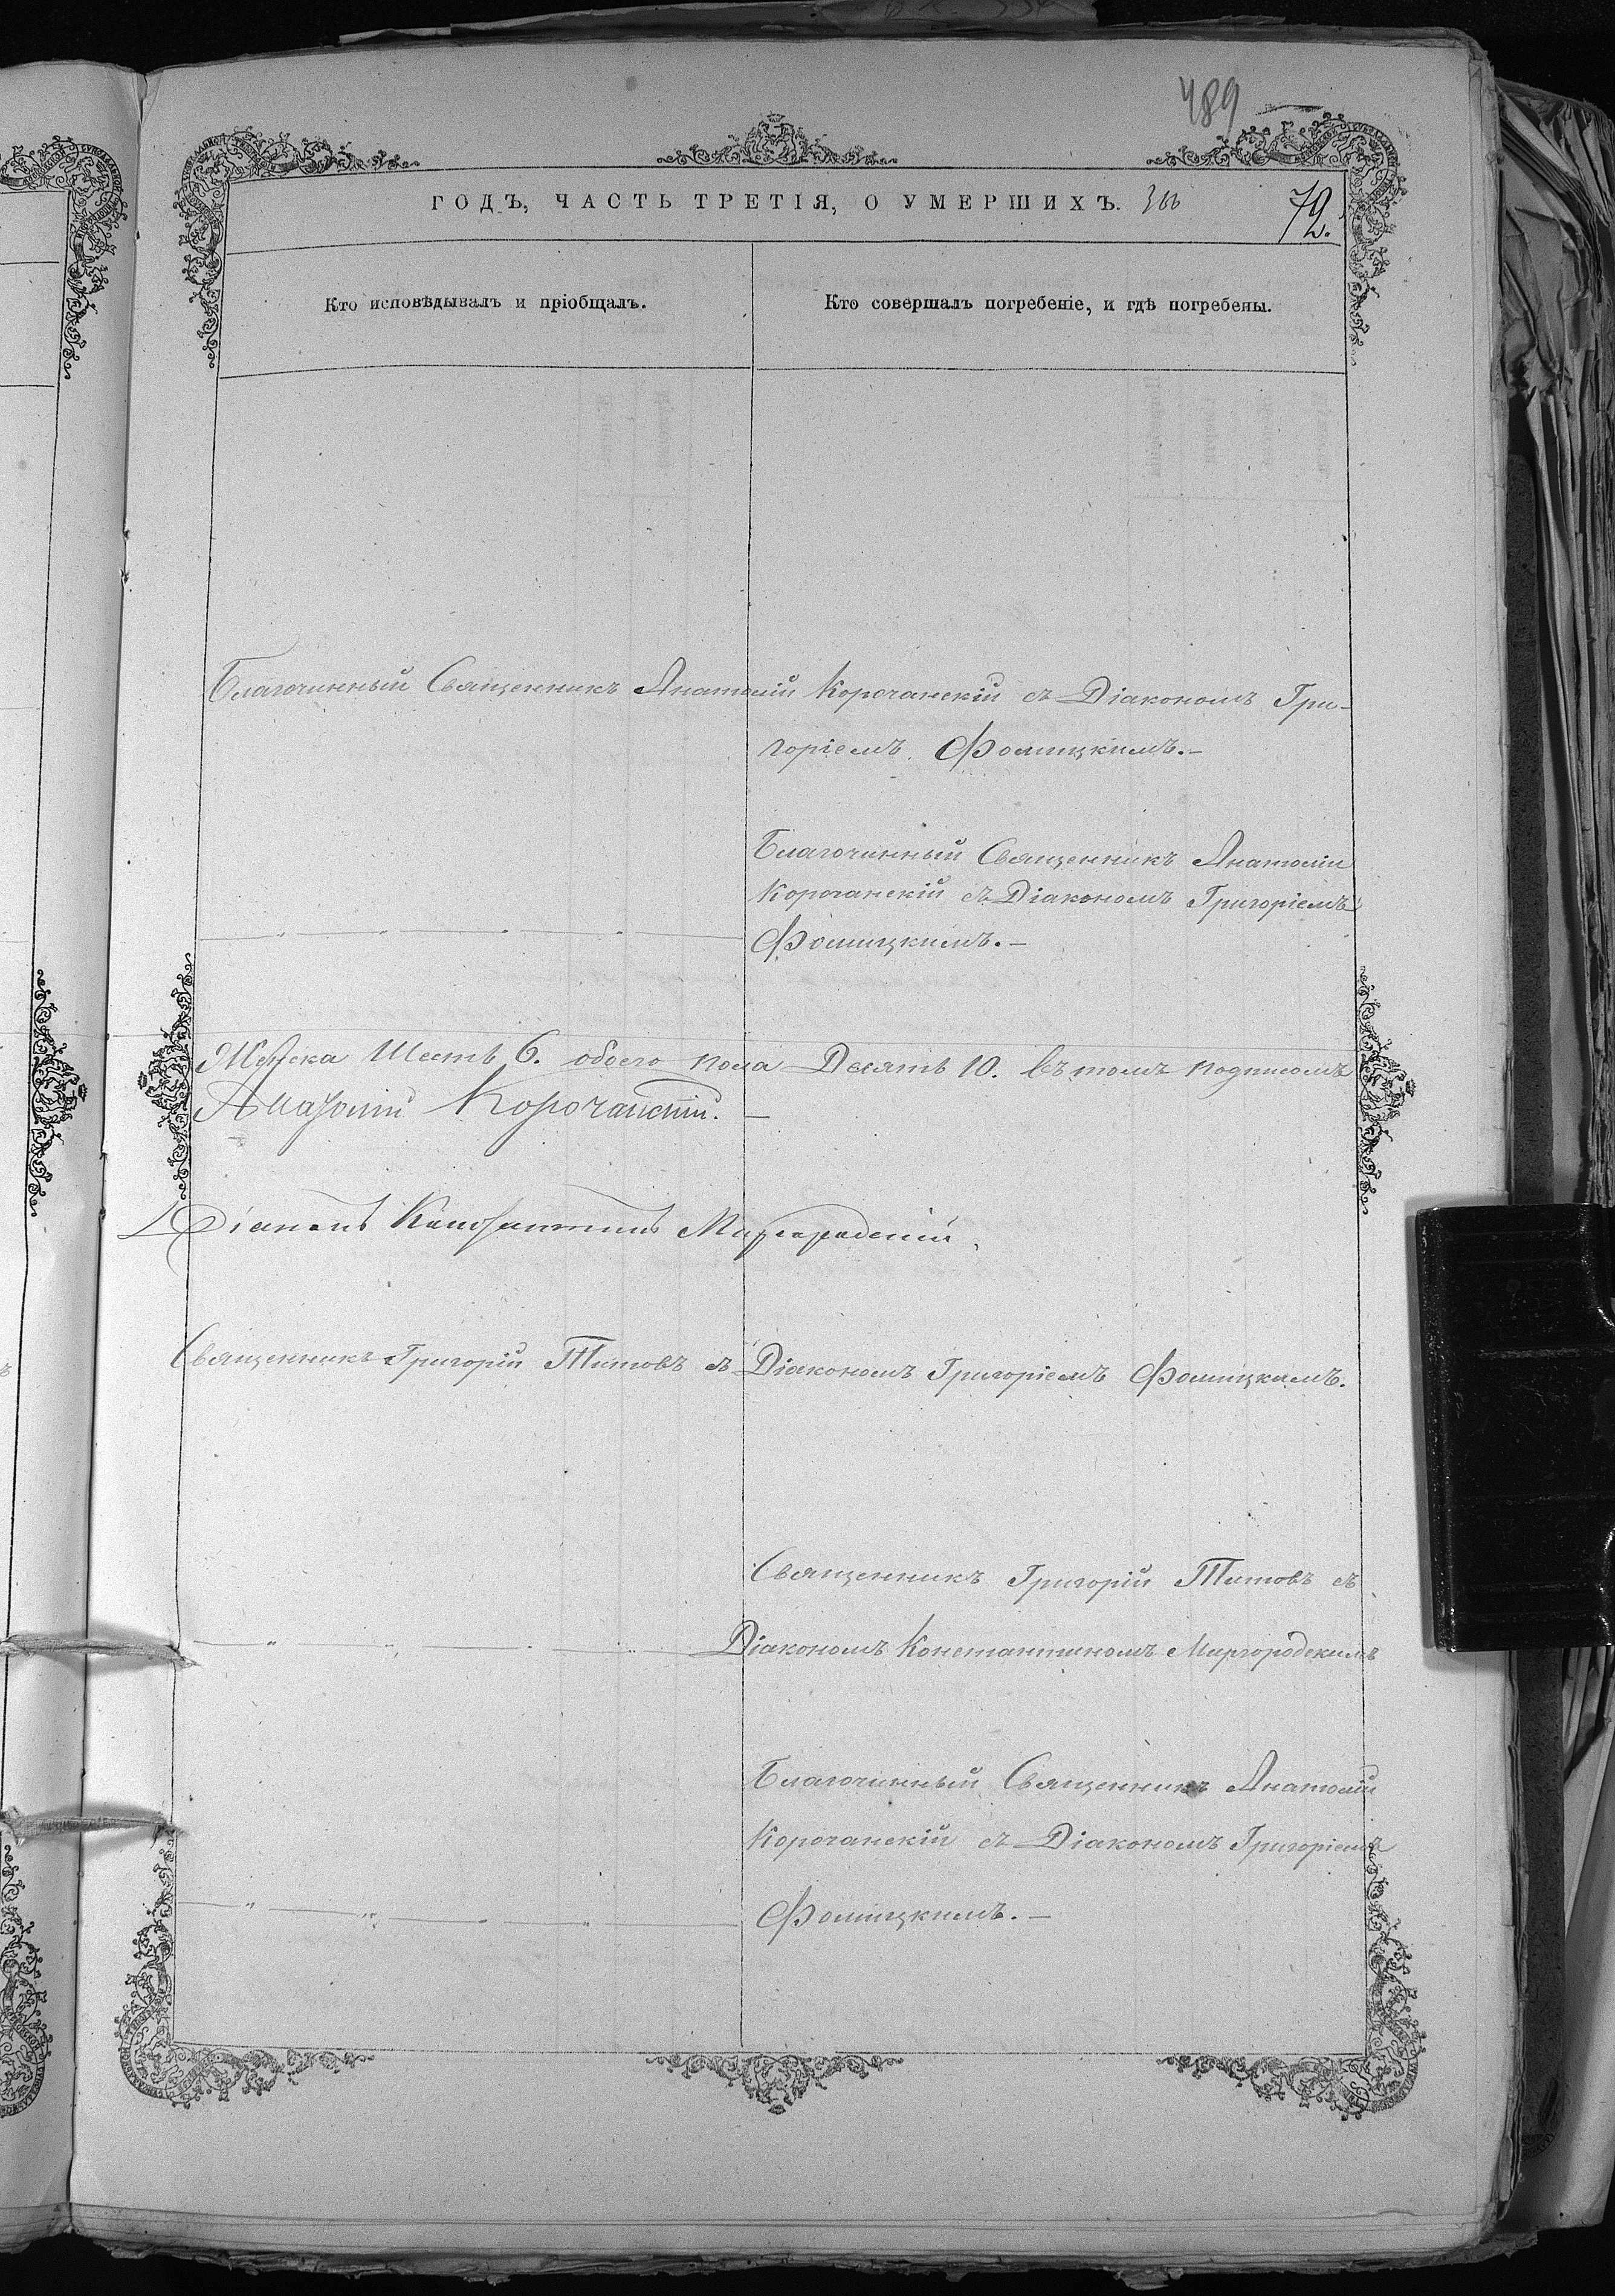 489
ГОДЪ, ЧАСТЬ ТРЕТІЯ, О УМЕРШИХЪ. 72.
Кто исповѣдывалъ и пріобщалъ.
Кто совершалъ погребеніе, и гдѣ погребены.
Благочинный Священникъ Анатолій Корочанскій съ Діакономъ Гри-
горіемъ Фомицкимъ.—
Благочинный Священникъ Анатолій
Корочанскій съ Діакономъ Григоріемъ
Фомицкимъ.—
Шесть 6. обоего пола Десять 10. въ томъ подписомъ
Анатолій Корочанскій.—
Діаконъ Константинъ Миргородскій.
Священникъ Григорій Титовъ съ Діакономъ Григоріемъ Фомицкимъ.
Священникъ Григорій Титовъ съ
Діакономъ Константиномъ Миргородскимъ
Благочинный Священникъ Анатолій
Корочанскій съ Діакономъ Григоріемъ
Фомицкимъ.—